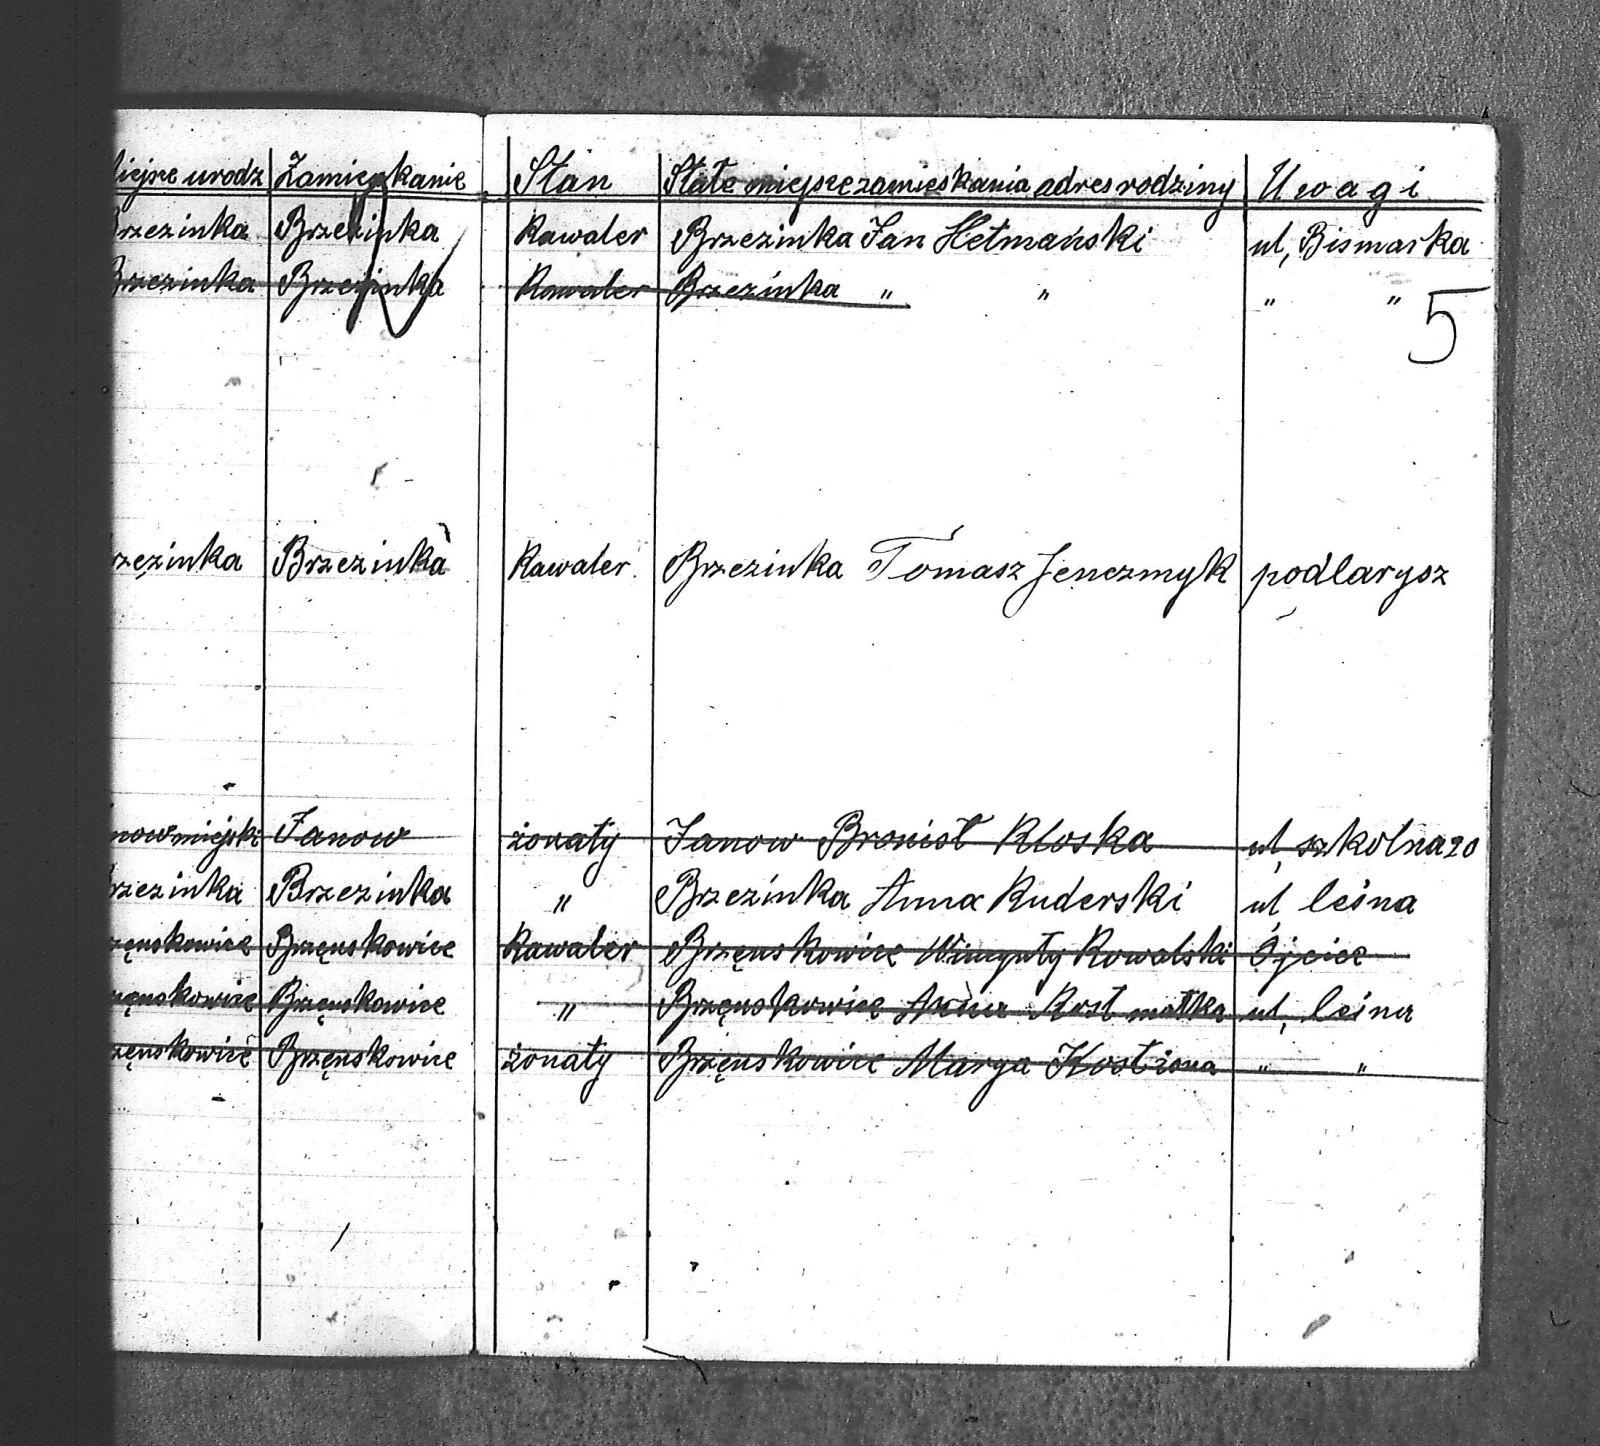 Miejsce urodz Zamieszkanie Stan Stałe miejsce zamieskania adres rodziny Uwagi
Brzezinka Brzezinka Kawaler Brzezinka Jan Hetmański ul, Bismarka
Brzezinka Brzezinka Kawaler Brzezinka " " " "
5
rzezinka Brzezinka Kawaler Brzezinka Tomasz Jenczmyk podlarysz
now miejski Janow żonaty Janow Bronisł Kloska ul, szkolna 20
rzezinka Brzezinka " Brzezinka Anna Kuderski ul leśna
zęnskowice Brzęnskowice Kawaler Brzęnskowice Kowalski Ojciec
zęnskowice Brzęnskowice " Brzęnskowice Kost matka ul, leśna
zęnskowice Brzęnskowice żonaty Brzęnskowice Marya Kost żona " "